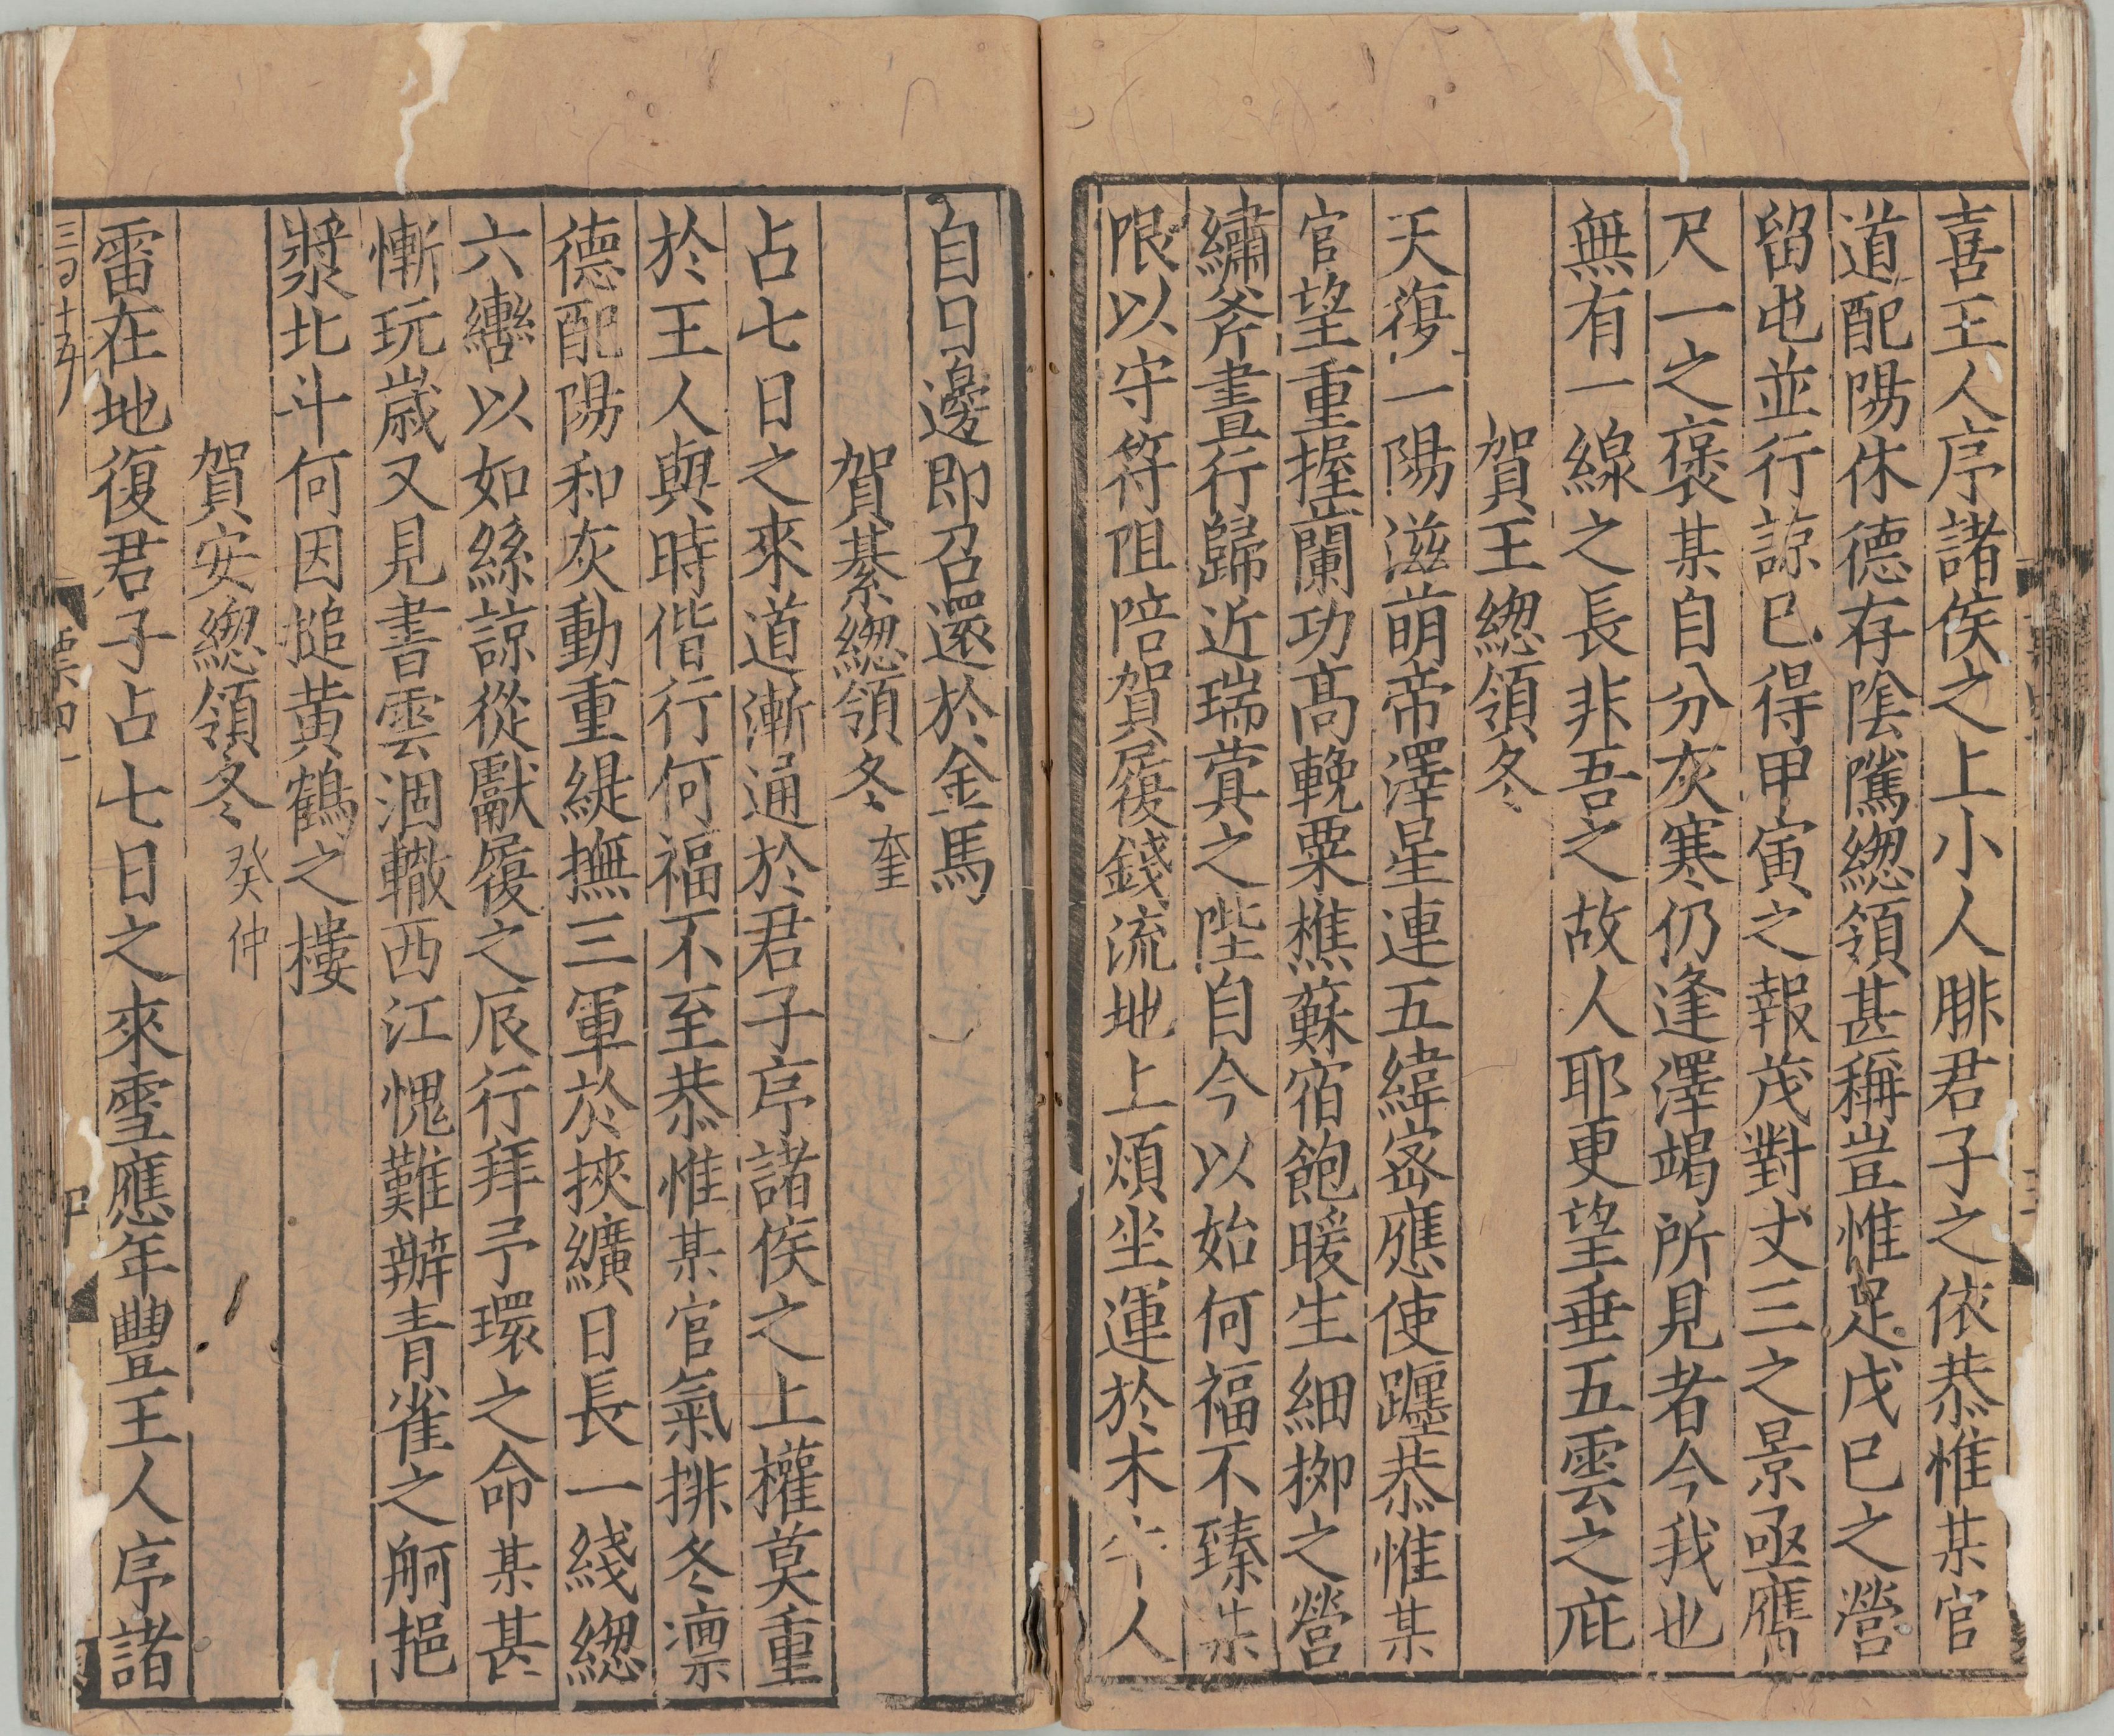 喜王人序諸侯之上小人腓君子之依恭惟某官
道配陽休德存陰隲緫領甚稱豈惟足戊巳之營
留屯並行諒巳得甲寅之報茂對丈三之景亟膺
尺一之褒某自分灰寒仍逢澤竭所見者今我也
無有一線之長非吾之故人耶更望垂五雲之庇
賀王緫領冬
天復一陽滋萌帝澤星連五緯宻應使躔恭惟某
官望重握蘭功高輓粟樵蘇宿飽暖生細栁之營
繡斧晝行歸近瑞蓂之陛自今以始何福不臻某
限以守符阻陪賀履錢流地上煩坐運於木牛人
自日邊即召還於金馬
賀綦緫領冬 奎
占七日之來道漸通於君子序諸侯之上權莫重
於王人與時偕行何福不至恭惟某官氣排冬凛
德配陽和灰動重緹撫三軍於挾纊日長一綫緫
六轡以如絲諒從獻履之辰行拜予環之命某甚
慚玩歲又見書雲涸轍西江愧難辦青雀之舸挹
漿北斗何因搥黄鶴之樓
賀安緫領冬 癸仲
雷在地復君子占七日之來雪應年豐王人序諸